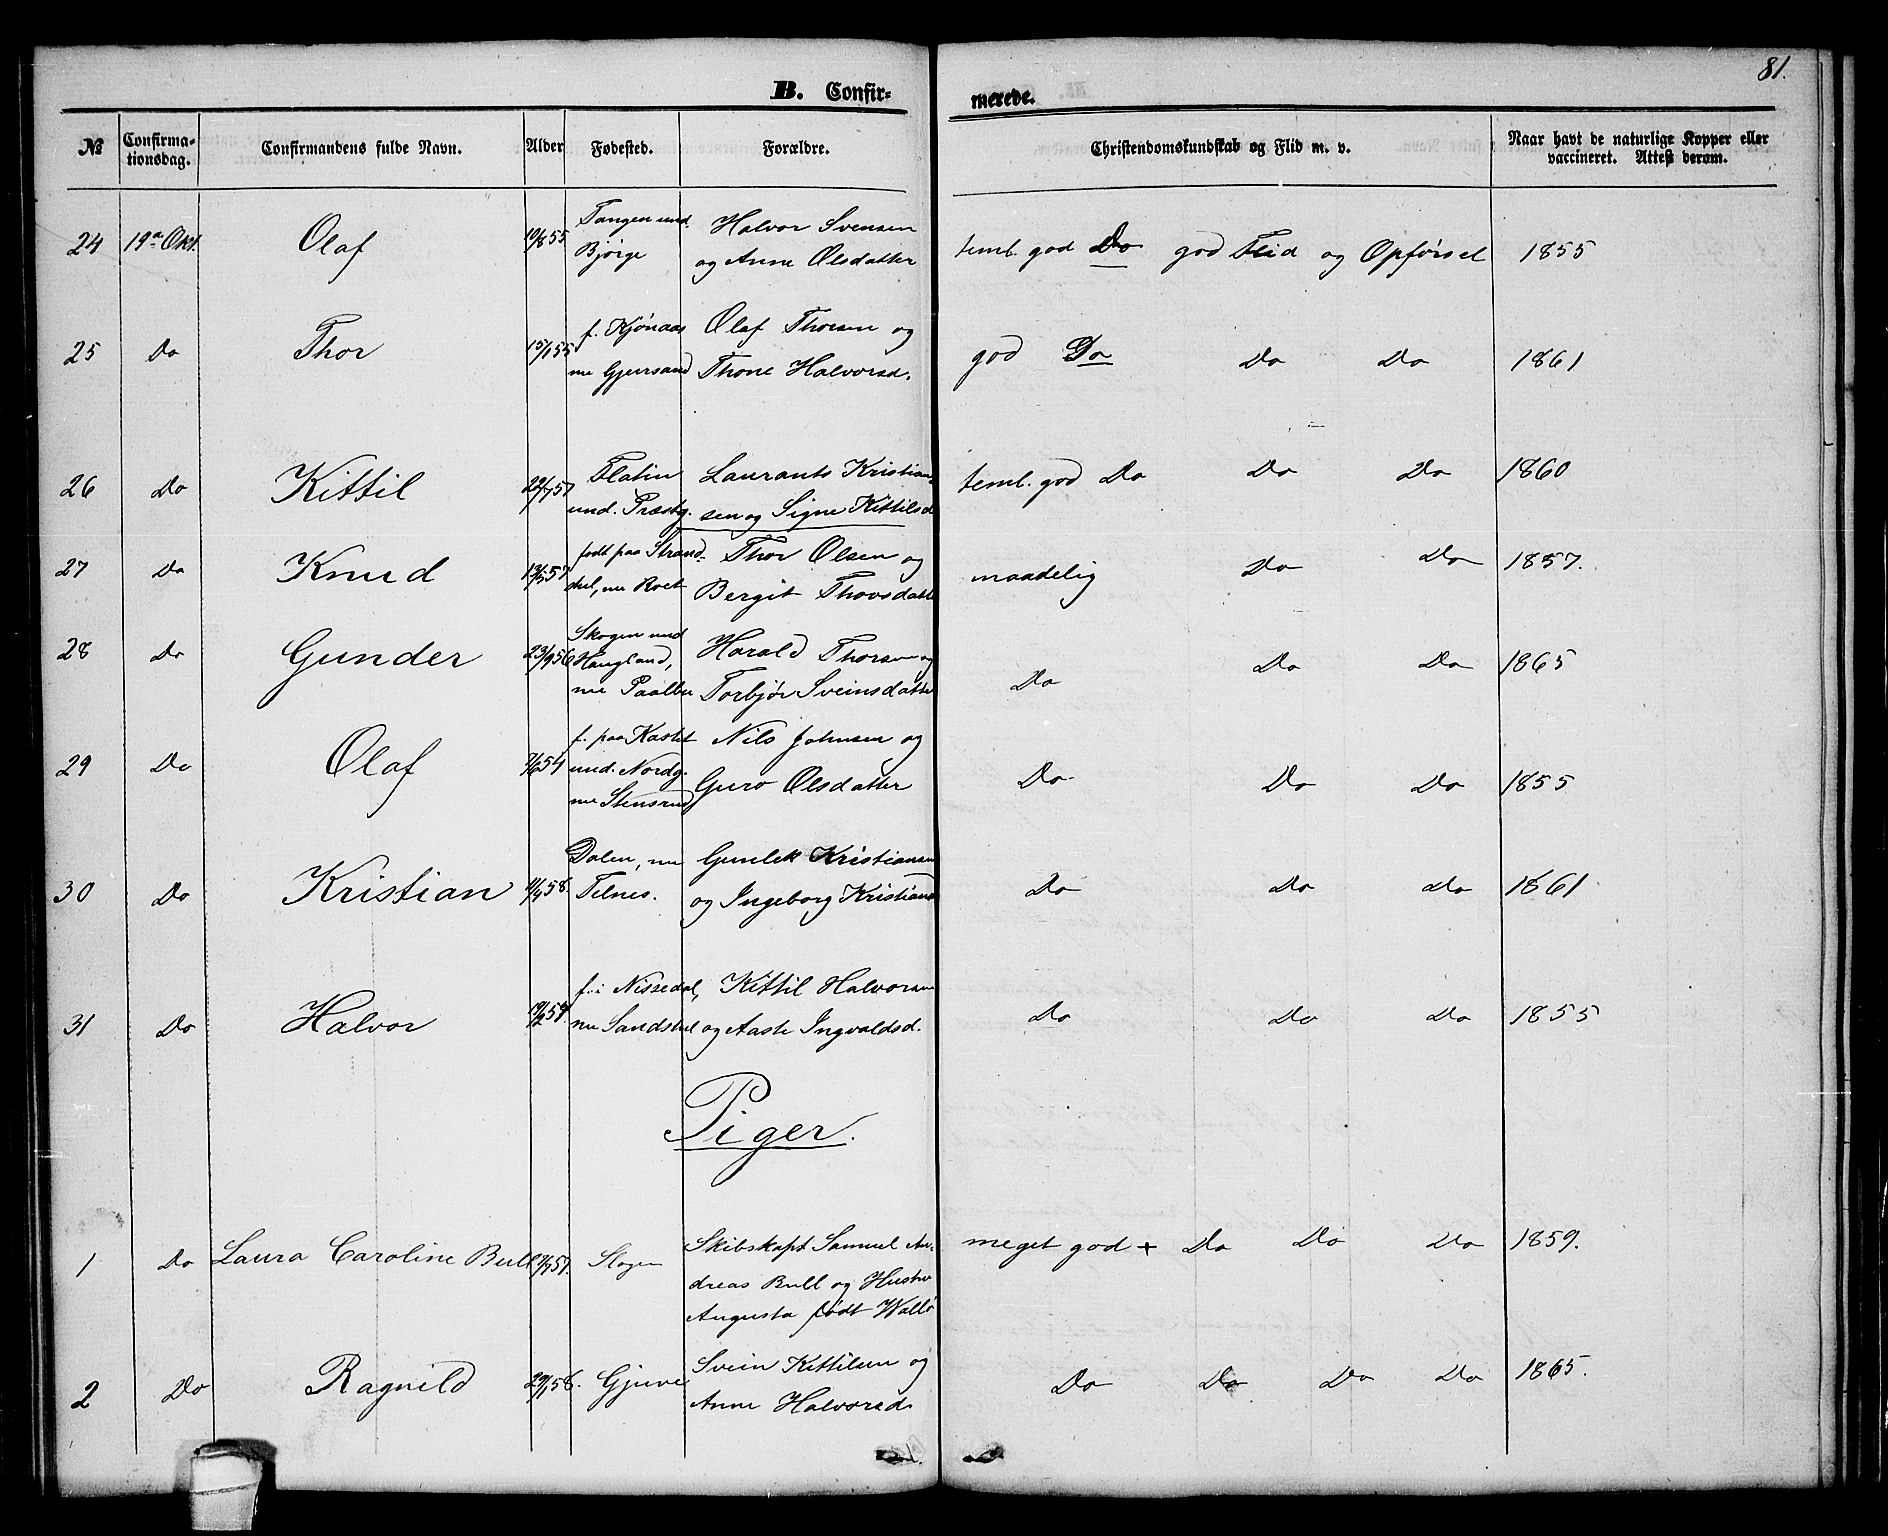 81.
B. Confir- merede.
№ Confirma-tionsdag. Confirmandens fulde Navn. Alder Fødested. Forældre. Christendomskundskab og Flid m. v. Naar havt de naturlige Kopper eller vaccineret. Attest derom.
24 19de Okt. Olaf 10/8 55 Tangen und. Bjørge Halvor Svensen og Anne Olsdatter teml. god Do god Flid og Opførsel 1855
25 Do Thor 15/1 55 f. Kjønaas nu Gjersund Olaf Thorsen og Thone Halvorsd. god Do Do Do 1861
26 Do Kittil 29/7 57 Flatin und. Præstg. Laurants Kristiansen og Signe Kittilsd teml. god Do Do Do 1860
27 Do Knud 57 født paa Strand-, nu Roet Thor Olsen og Bergit Thovsdatte maadelig Do Do 1857.
28 Do Gunder 23/9 56 Skogen und Haugland, nu Paalbu Harald Thorsen og Torbjør Sveinsdatte Do Do Do 1865
29 Do Olaf 7/6 54 f. paa Kastet und. Nordg. nu Stensrud Nils Johnsen og Guro Olsdatter Do Do Do 1855
30 Do Kristian 11/4 58. Dalen, nu Tilnes. Gunlek Kristiansen og Ingeborg Kristiansd Do Do Do 1861
31 Do Halvor 19/2 54. f. i Nissedal, nu Sandstul Kittil Halvorsen og Aaste Ingvaldsd. Do Do Do 1855
Piger.
1 Do Laura Caroline Bull 9/7 57. Slagen Skibskapt Samuel Andreas Bull og Hustru Augusta født Wallø meget god + Do Do Do 1859.
2 Do Ragnild 29/1 58. Gjuve Svein Kittilsen og Anne Halvorsd. Do Do Do Do 1865.